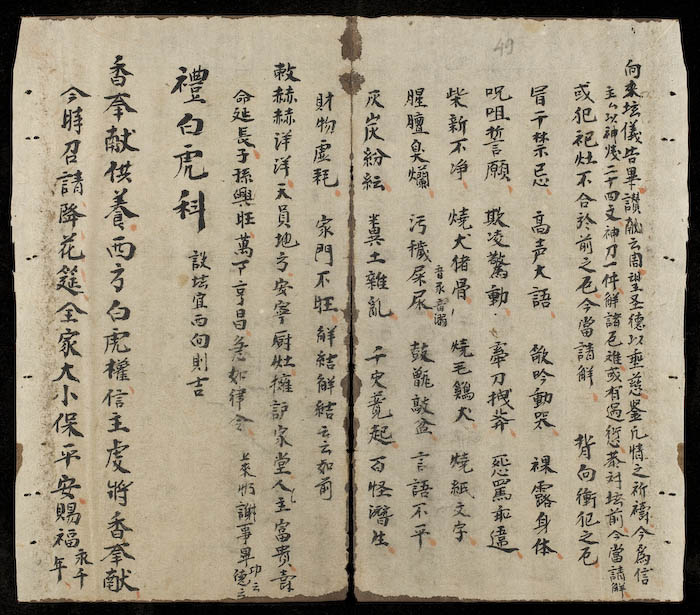 49
向來坛儀告畢讚献云園望圣德以垂慈鉴凡情之祈禱今為信
主ム以神煖二十四文神刀一件解諸厄难或有過愆恭对坛前今當請解
或犯祀灶不合於前之厄今當請解 背向衝犯之厄
冒干禁忌 高声大語 歌吟動哭 裸露身体
呪咀誓願 欺凌驚動 牽刀拽斧 恶罵
柴新不净 燒犬猪骨 燒毛鷄犬 燒紙文字
腥膻臭爛 汚穢屎尿 音禾音溺 鼓甑敲盆 言語不平
灰炭紛紜 粪土雜乱 千灾竟起 百怪潛生
財物虚耗 家門不旺 解結解結云云如前
敕赫赫洋洋天員地方安寧厨灶擁护家堂人主富貴壽
命延長子孫興旺萬事亨昌急如律令 上來所謝事畢功德云云
禮白虎科 設坛宜西向則吉
香奉献供養西方白虎權信主虔將香奉献
今時召請降花筵全家大小保平安賜福永千年